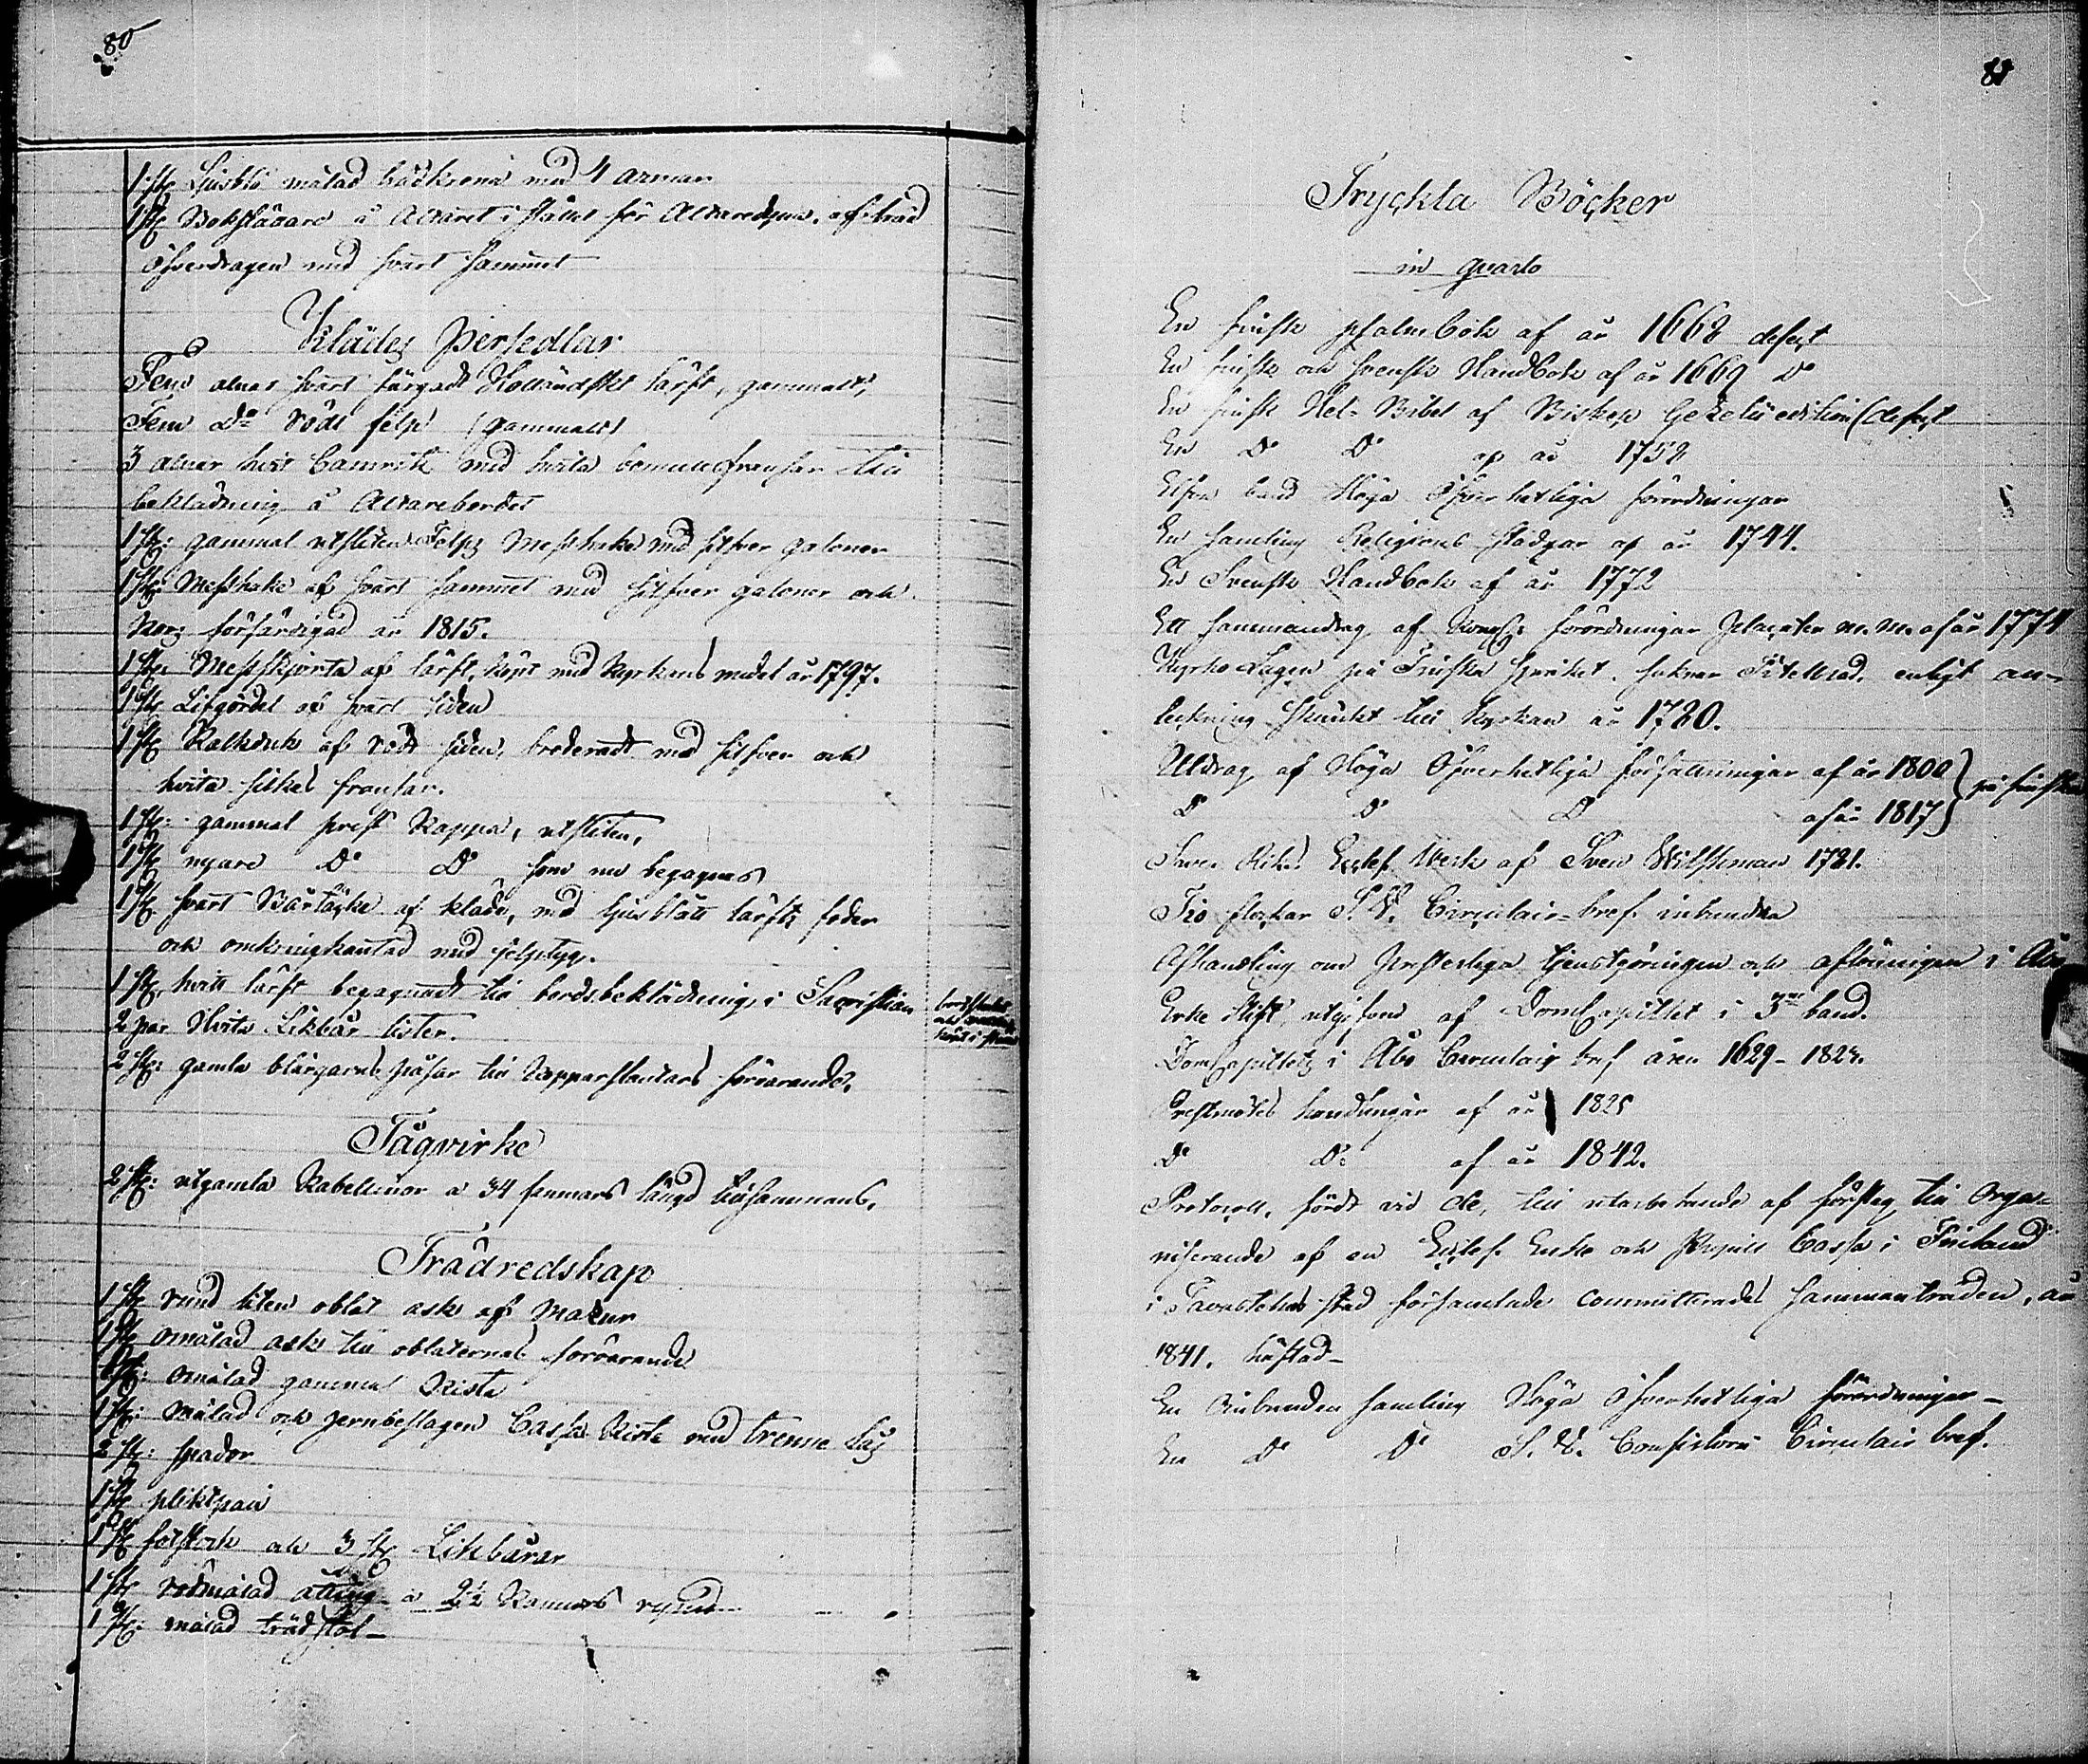 80
1 st Ljusblå målad  med 4 armar
1 st Bokställare å Altaret i stället för Altaredyna, af träd
öfverdragen med svart sammet
Klädes persedlar
Fem alnar svart färgadt Holländskt lärft, gammalt,
Fem Do rödt felp (gammalt)
3 alnar hvit Camrik med hvita bomulls fransar till
beklädning å Altarebordet
1 st: gammal utsliten Felps Messhake med silfver galoner
1 st: Messhake af svart sammet med silfver galoner och
Kors förfärdigad år 1815.
1 st. Messskjorta af lärft, köpt med Kyrkans medel år 1797.
1 st Lifgördel af svart siden
1 st Kalkduk af rödt siden, broderadt med silfver och
hvita silkes fransar.
1 st: gammal prest Kappa, utsliten,
1 st nyare Do Do som nu begagnas
1 st svart Bårtäcke af kläde, med ljusblått lärfts foder
och omkringkantad med felptyg.
1 st. hvitt lärft begagnadt till bordsbeklädning i Sacristian
2 par Hvita Likbår lister.
2 st: gamla blårgarns påsar till Kopparslantars förvarande.
Tågvirke
2 st: utgamla Kabellinor a 34 famnars längd tillsammans.
Trädredskap
1 st rund liten oblat ask af Masur
1 st omålad ask till oblaternas förvarande
1 st: omålad gammal Kista
1 st: målad och jernbeslagen Cassa Kista med trenne Lås
2 st: spador
1 st pliktpall
1 st fotstock och 3 st Likbårar
1 st rödmålad åtting a 2½ Kannors rymd
1 st: målad trädstol
81
Tryckta Böcker
in quarto
En finsk psalmbok af år 1668 defect
En finsk och svensk Handbok af år 1669 Do
En finsk Hel-Bibel af Biskop Gezelii edition (defect
En Do Do af år 1758
Elfva band Höga Öfverhetliga förordningar
En samling Religions stadgar af år 1744.
En Svensk Handbok af år 1772
Ett sammandrag af Kongl: förordningar Placater m.m. af år 1774
Kyrko Lagen på Finska språket. saknar Titelblad, enligt an-
teckning skänkt till kyrkan år 1780.
Utdrag af Höga Öfverhetliga författningar af år 1800 } på finska
Do Do Do af år 1817
Svea Rikes Eccles. Verk af Sven Wilskman 1781.
Tio stockar S. V. Circulair-bref inbundna
Afhandling om Presterliga tjenstgöringen och aflöningen i Åbo
Erke Stift, utgifven af DomCapitlet i 3ne band.
DomCapitlets i Åbo Circulair bref åren 1629-1824.
Prestmötes handlingar af år 1825
Do Do af år 1842.
Protocoll, fördt vid de, till utarbetande af förslag till Orga-
niserande af en Eccles. Enke och Pupill Cassa i Finland
i Tavastehus stad församlade committerades sammanträden, år
1841. häftad-
En Oinbunden samling Höga Öfverhetliga förordningar-
En Do Do S. V. Consistorii Circulair bref.